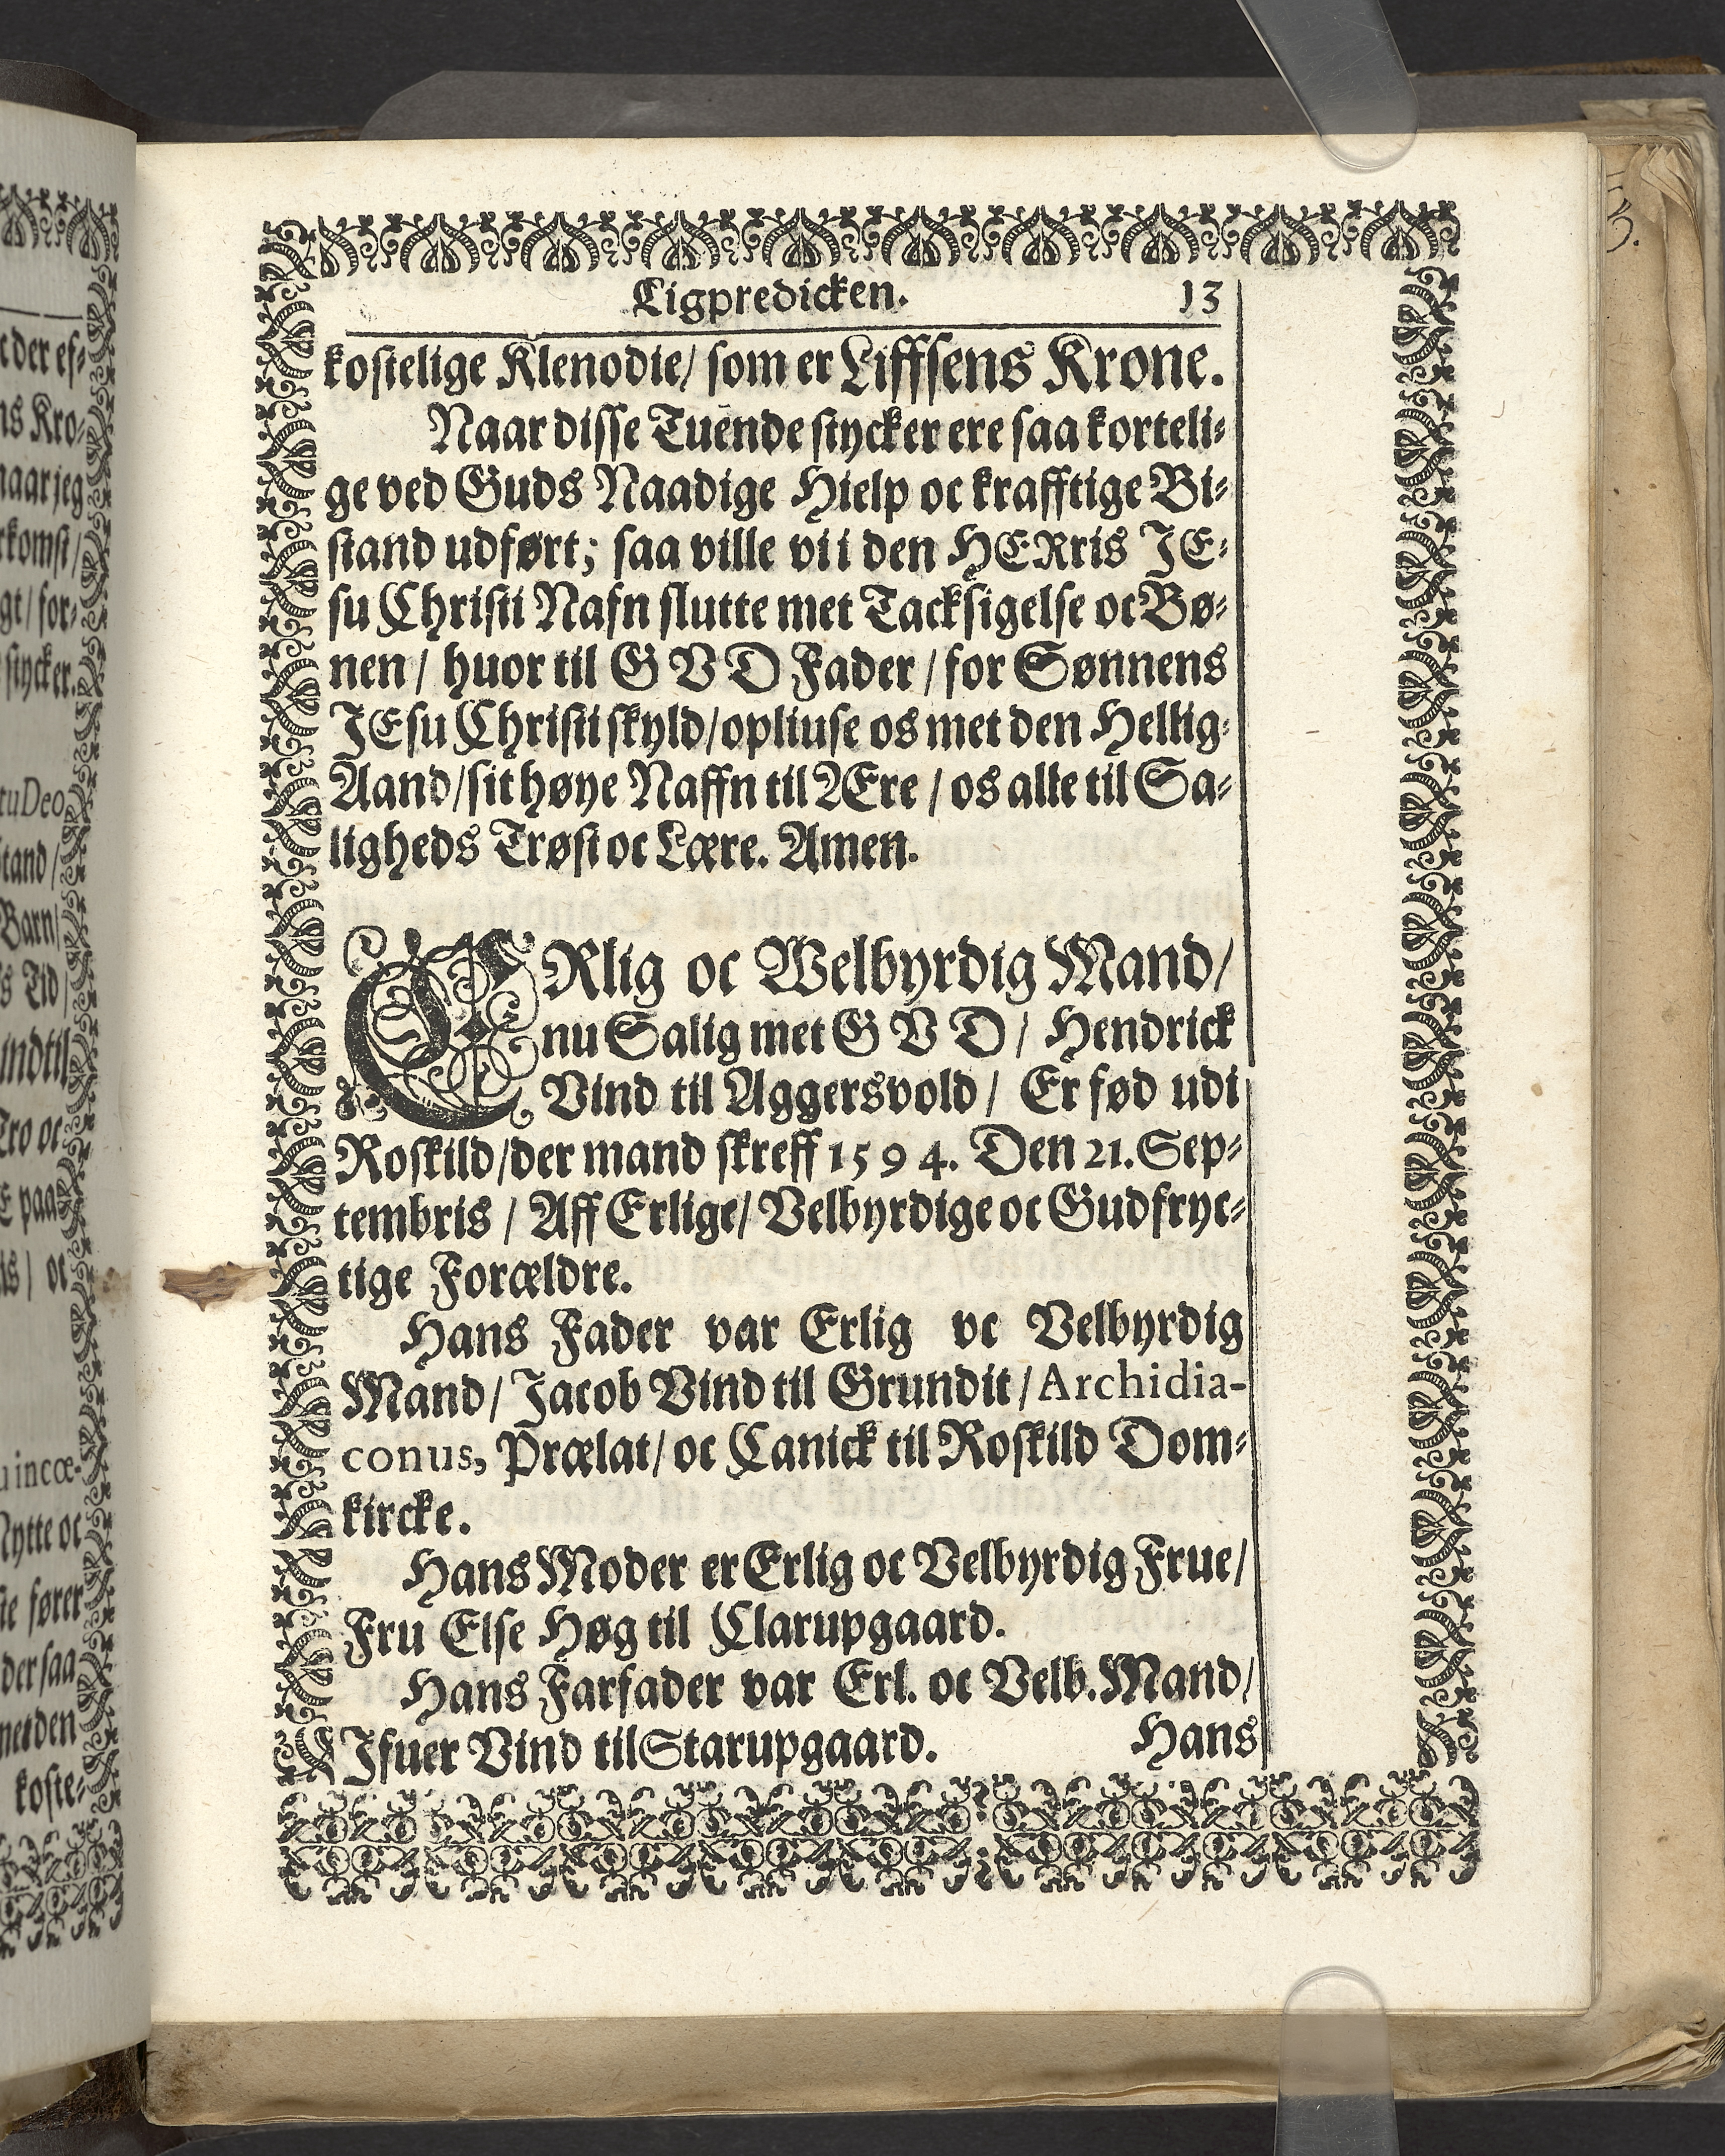 Ligpredicken. 13
kostelige Klenodie/ som er Liffsens Krone.
Naar disse Tuende stycker ere saa korteli-
ge ved Guds Naadige Hielp oc krafftige Bi-
stand udført; saa ville vi i den HERris JE-
su Christi Nafn slutte met Tacksigelse oc Bø-
nen/ huor til GVD Fader/ for Sønnens
JEsu Christi skyld/ opliuse os met den Hellig-
Aand/ sit høye Naffn til ÆEre/ os alle til Sa-
ligheds Trøst oc Lære. Amen.
ERlig oc Welbyrdig Mand/
nu Salig met GVD/ Hendrick
Vind til Aggersvold/ Er fød udi
Roskild/ der mand skreff 1594. Den 21. Sep-
tembris/ Aff Erlige/ Velbyrdige oc Gudfryc-
tige Forældre.
Hans Fader var Erlig oc Velbyrdig
Mand/ Jacob Vind til Grundit/ Archidia-
conus, Prælat/ oc Canick til Roskild Dom-
kircke.
Hans Moder er Erlig oc Velbyrdig Frue/
Fru Else Høg til Clarupgaard.
Hans Farfader var Erl. oc Velb. Mand/
Ifuer Vind til Starupgaard. Hans